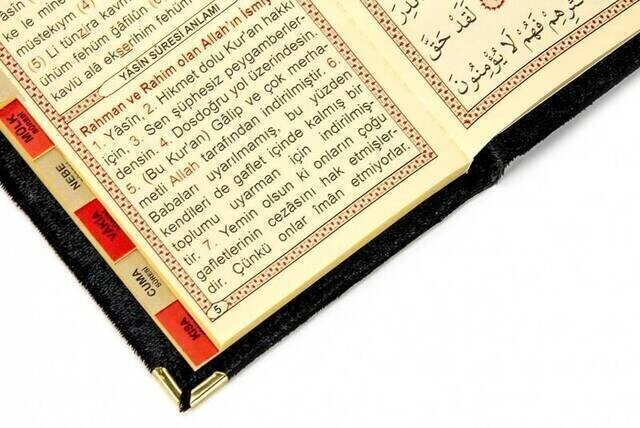 müstekıym (4)
(5) Li tünzira kavmen
ühüm fehüm ğâfilûn (6)
kavlü alâ ekserihim fehüm
YÂSİN SÛRESİ ANLAMI
Rahman ve Rahim olan Allah'ın İsmiy
1. Yâsîn. 2. Hikmet dolu Kur'an hakkı
için, 3. Sen şüphesiz peygamberler-
densin. 4. Dosdoğru yol üzerindesin.
5. (Bu Kur'an) Gâlip ve çok merha-
metli Allah tarafından indirilmiştir. 6.
Babaları uyarılmamış, bu yüzden
kendileri de gaflet içinde kalmış bir
toplumu uyarman için indirilmiş-
tir. 7. Yemin olsun ki onların çoğu
gafletlerinin cezâsını hak etmişler-
dir. Çünkü onlar îmân etmiyorlar.
5
MÜLK
SÛRESİ
NEBE
VAKIA
CUMA
SÛRESİ
KISA
لَقَدْ حَقَّ
فَهُمْ لَا يُؤْمِنُونَ